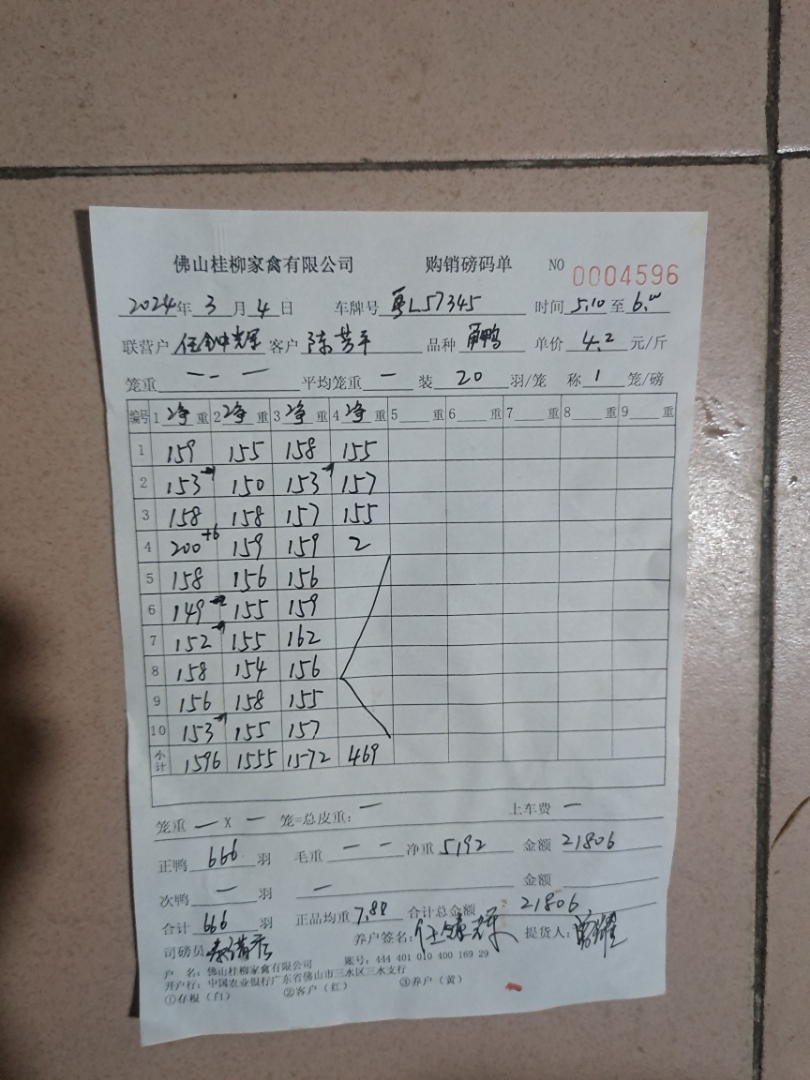 佛山桂柳家禽有限公司 购销磅码单 NO 0004596
2024年 3 月 4 日 车牌号 粤L57345 时间 5.10 至 6.00
联营户 客户 陈芳平 品种 鸭 单价 4.2 元/斤
笼重 — - — 平均笼重 — 装 20 羽/笼 称 1 笼/磅
编号 1 净 重 2 净 重 3 净 重 4 净 重 5 重 6 重 7 重 8 重 9 重
1 159 155 158 155
2 153 150 153 157
3 158 158 157 155
4 200+6 159 159 2
5 158 156 156
6 149 155 159
7 152 155 162
8 158 154 156
9 156 158 155
10 153 155 157
小计 1596 1555 1572 469
笼重 — X — 笼=总皮重: — 上车费 —
正鸭 666 羽 毛重 — — 净重 5192 金额 21806
次鸭 — 羽 — 金额
合计 666 羽 正品均重 7.88 合计总金额 21806
司磅员 养户签名: 提货人:
户 名: 佛山桂柳家禽有限公司 账号: 444 401 010 400 169 29
开户行: 中国农业银行广东省佛山市三水区三水支行
①存根（白） ②客户（红） ③养户（黄）